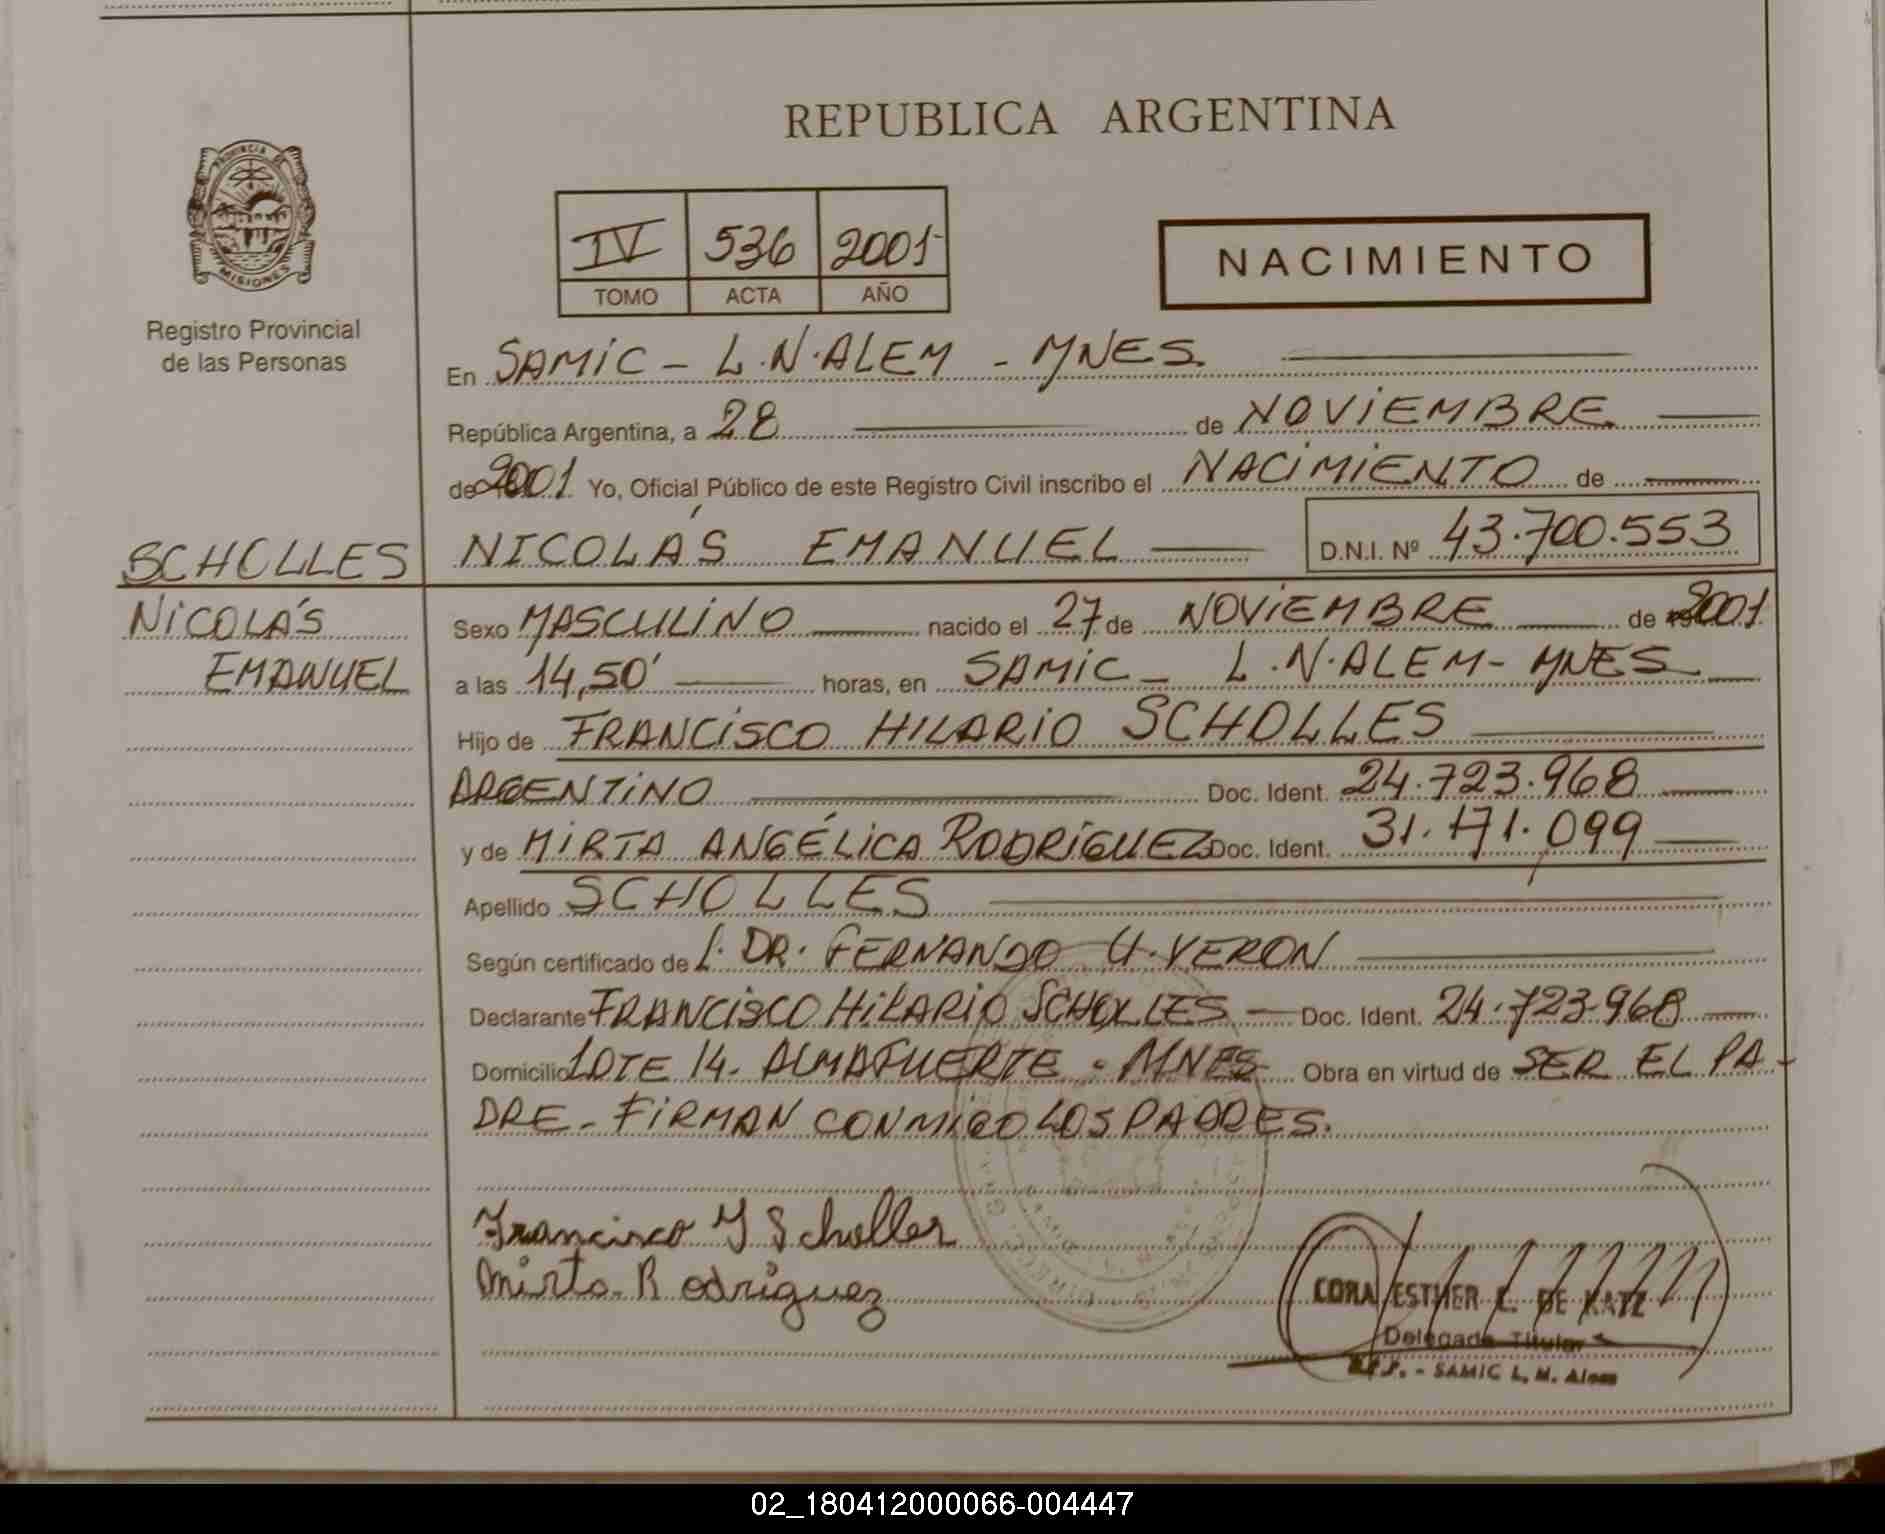 REPUBLICA ARGENTINA
PROVINCIA DE
MISIONES
Registro Provincial
de las Personas
IV 536 2001
TOMO ACTA AÑO
NACIMIENTO
En SAMIC - L.N.ALEM - MNES.
República Argentina, a 28 de NOVIEMBRE
de 2001 Yo, Oficial Público de este Registro Civil inscribo el NACIMIENTO de
SCHOLLES NICOLÁS EMANUEL D.N.I. Nº 43.700.553
NICOLÁS Sexo MASCULINO nacido el 27 de NOVIEMBRE de 2001
EMANUEL a las 14,50' horas, en SAMIC - L.N.ALEM - MNES
Hijo de FRANCISCO HILARIO SCHOLLES
ARGENTINO Doc. Ident. 24.723.968
y de MIRTA ANGÉLICA RODRÍGUEZ Doc. Ident. 31.171.099
Apellido SCHOLLES
Según certificado de DR. FERNANDO VERON
Declarante FRANCISCO HILARIO SCHOLLES Doc. Ident. 24.723.968
Domicilio LOTE 14 - ALMAFUERTE - MNES Obra en virtud de SER EL PA-
DRE - FIRMAN CONMIGO LOS PADRES.
Francisco H Scholles
Mirta Rodriguez
CORA ESTHER L. DE KATZ
Delegada Titular
R.P.P. - SAMIC L. N. Alem
02_180412000066-004447